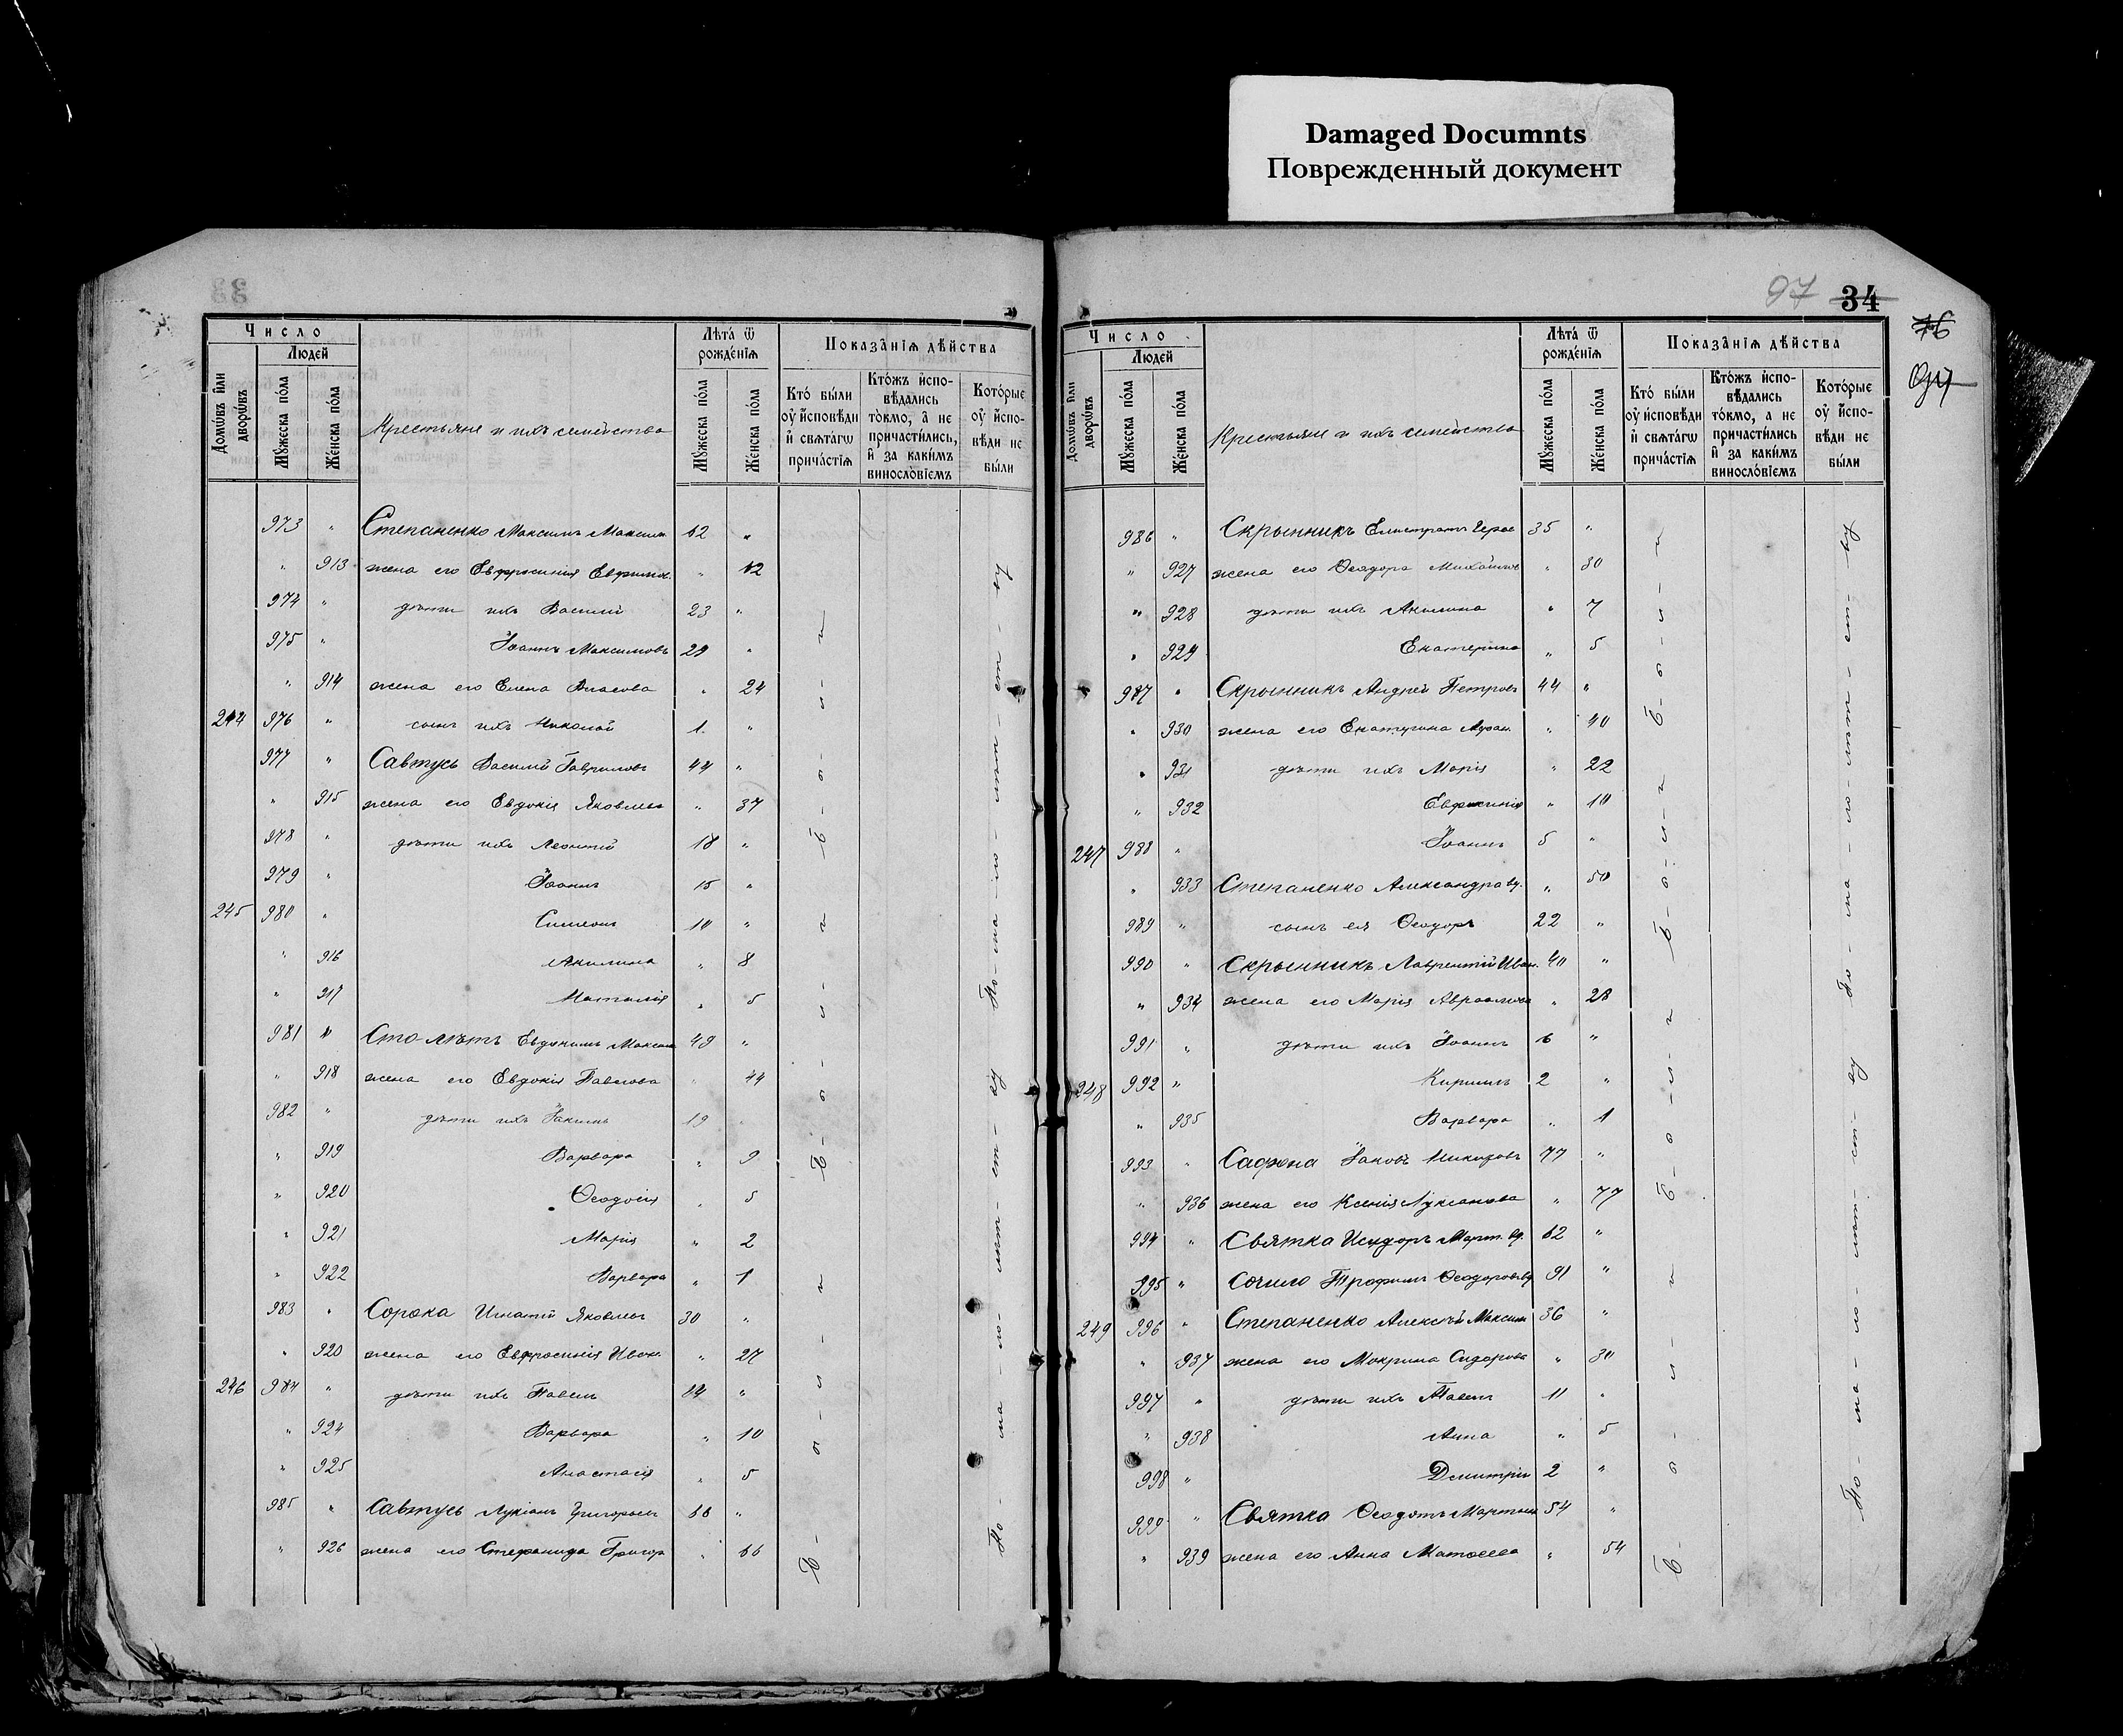 Damaged Documnts
Поврежденный документ
Число
Людей
Домѡвъ и҆лѝ дворѡ́въ
Мꙋ́жеска по́ла
Же́нска по́ла
Крестьяне и ихъ семейства
Лѣта́ ѿ рожде́нїѧ
Мꙋ́жеска по́ла
Же́нска по́ла
Показа̑нїѧ дѣ́йства
Кто̀ бы́ли оу҆ и҆сповѣ́ди и҆ свѧта́гѡ прича́стїѧ
Кто́жъ и҆спо-вѣ́дались то́кмо, а҆ не причасти́лись, и҆ за каки́мъ виносло́вїемъ
Кото́рые оу҆ и҆спо-вѣ́ди не бы́ли
973 " Степаненко Максимъ Максим. 62 "
" 913 жена его Евфросинія Евфимов. " 62
974 " дѣти ихъ Василий 23 "
975 " Іоаннъ Максимовъ 29 "
" 914 жена его Елена Власова " 24
244 976 " сынъ ихъ Николай 1 "
977 " Савтусь Василий Гавриловъ 44 "
" 915 жена его Евдокія Яковлева " 37
978 " дѣти ихъ Леонтій 18 "
979 " Іоаннъ 15 "
245 980 " Симеонъ 10 "
" 916 Акилина " 8
" 917 Наталія " 5
981 " Сто-лѣтъ Евдокимъ Максим 49 "
" 918 жена его Евдокія Павлова " 44
982 " дѣти ихъ Іакимъ 19
" 919 Варвара " 9
" 920 Ѳеодосія " 5
" 921 Марія " 2
" 922 Варвара " 1
983 " Сорока Игнатій Яковлевъ 30 "
" 920 жена его Евфросинія Иван. " 27
246 984 " дѣти ихъ Павелъ 12 "
" 924 Варвара " 10
" 925 Анастасія " 5
985 " Савтусь Лукіанъ Григорьевъ 66 "
" 926 жена его Стефанида Григор " 66
Б-ы-л-и
По-ма-ло-лѣт-ст-ву
97 34
76
97
Число
Людей
Домѡвъ и҆лѝ дворѡ́въ
Мꙋ́жеска по́ла
Же́нска по́ла
Крестьяне и ихъ семейства
Лѣта́ ѿ рожде́нїѧ
Мꙋ́жеска по́ла
Же́нска по́ла
Показа̑нїѧ дѣ́йства
Кто̀ бы́ли оу҆ и҆сповѣ́ди и҆ свѧта́гѡ прича́стїѧ
Кто́жъ и҆спо-вѣ́дались то́кмо, а не причасти́лись и҆ за каки́мъ виносло́вїемъ
Кото́рые оу҆ и҆спо-вѣ́ди не бы́ли
986 " Скрынникъ Елистратъ Герас 35 "
" 927 жена его Ѳеодора Михайлова " 30
" 928 дѣти ихъ Акилина " 7
" 929 Екатерина " 5
987 " Скрынникъ Андрей Петровъ 44 "
" 930 жена его Екатерина Лукан. " 40
" 931 дѣти ихъ Марія " 22
" 932 Евфросинія " 10
247 988 " Іоаннъ 5 "
" 933 Степаненко Александра вд. " 50
989 " сынъ ея Ѳеодоръ 22 "
990 " Скрынникъ Лаврентій Иван. 40 "
" 934 жена его Марія Авраамова " 28
991 " дѣти ихъ Іоаннъ 6 "
248 992 " Кириллъ 2 "
" 935 Варвара " 1
993 " Сафона Іаковъ Никифовъ 77 "
" 936 жена его Ксенія Лукианова " 77
994 " Святка Исидоръ Март. вд. 62 "
995 " Сочило Трофимъ Ѳеодоров вд 91 "
249 996 " Степаненко Алексѣй Максим 36 "
" 937 жена его Мокрина Сидорова " 30
997 " дѣти ихъ Павелъ 11 "
" 938 Анна " 5
998 " Димитрій 2 "
999 " Святка Ѳеодотъ Мартын 54 "
" 939 жена его Анна Матѳеева " 54
Б-ы-л-и
По-ма-ло-лѣт-ст-ву